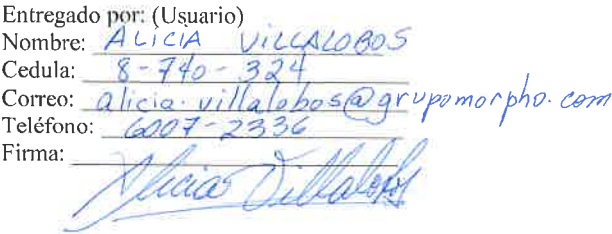 Entregado por: (Usuario)
Nombre: ALICIA VILLALOBOS
Cedula: 8-740-324
Correo: alicia.villalobos@grupomorpho.com
Teléfono: 6007-2336
Firma: Alicia Villalobos